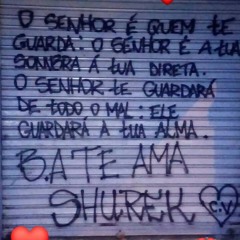 O SENHOR É QUEM TE
GUARDA: O SENHOR É A TUA
SOMBRA Á TUA DIRETA.
O SENHOR TE GUARDARÁ
DE TODO O MAL: ELE
GUARDARÁ A TUA ALMA.
B.A TE AMA
SHUREK C.V